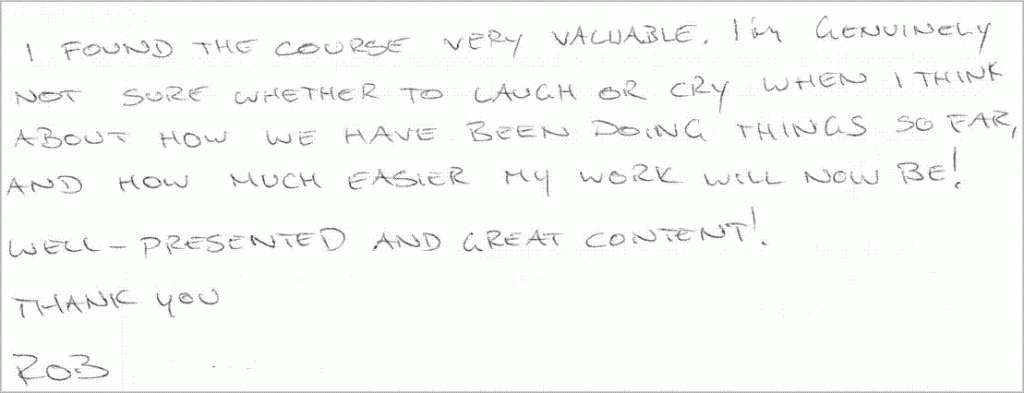 I FOUND THE COURSE VERY VALUABLE. I'm GENUINELY
NOT SURE WHETHER TO LAUGH OR CRY WHEN I THINK
ABOUT HOW WE HAVE BEEN DOING THINGS SO FAR,
AND HOW MUCH EASIER MY WORK WILL NOW BE!
WELL-PRESENTED AND GREAT CONTENT!
THANK YOU
ROB